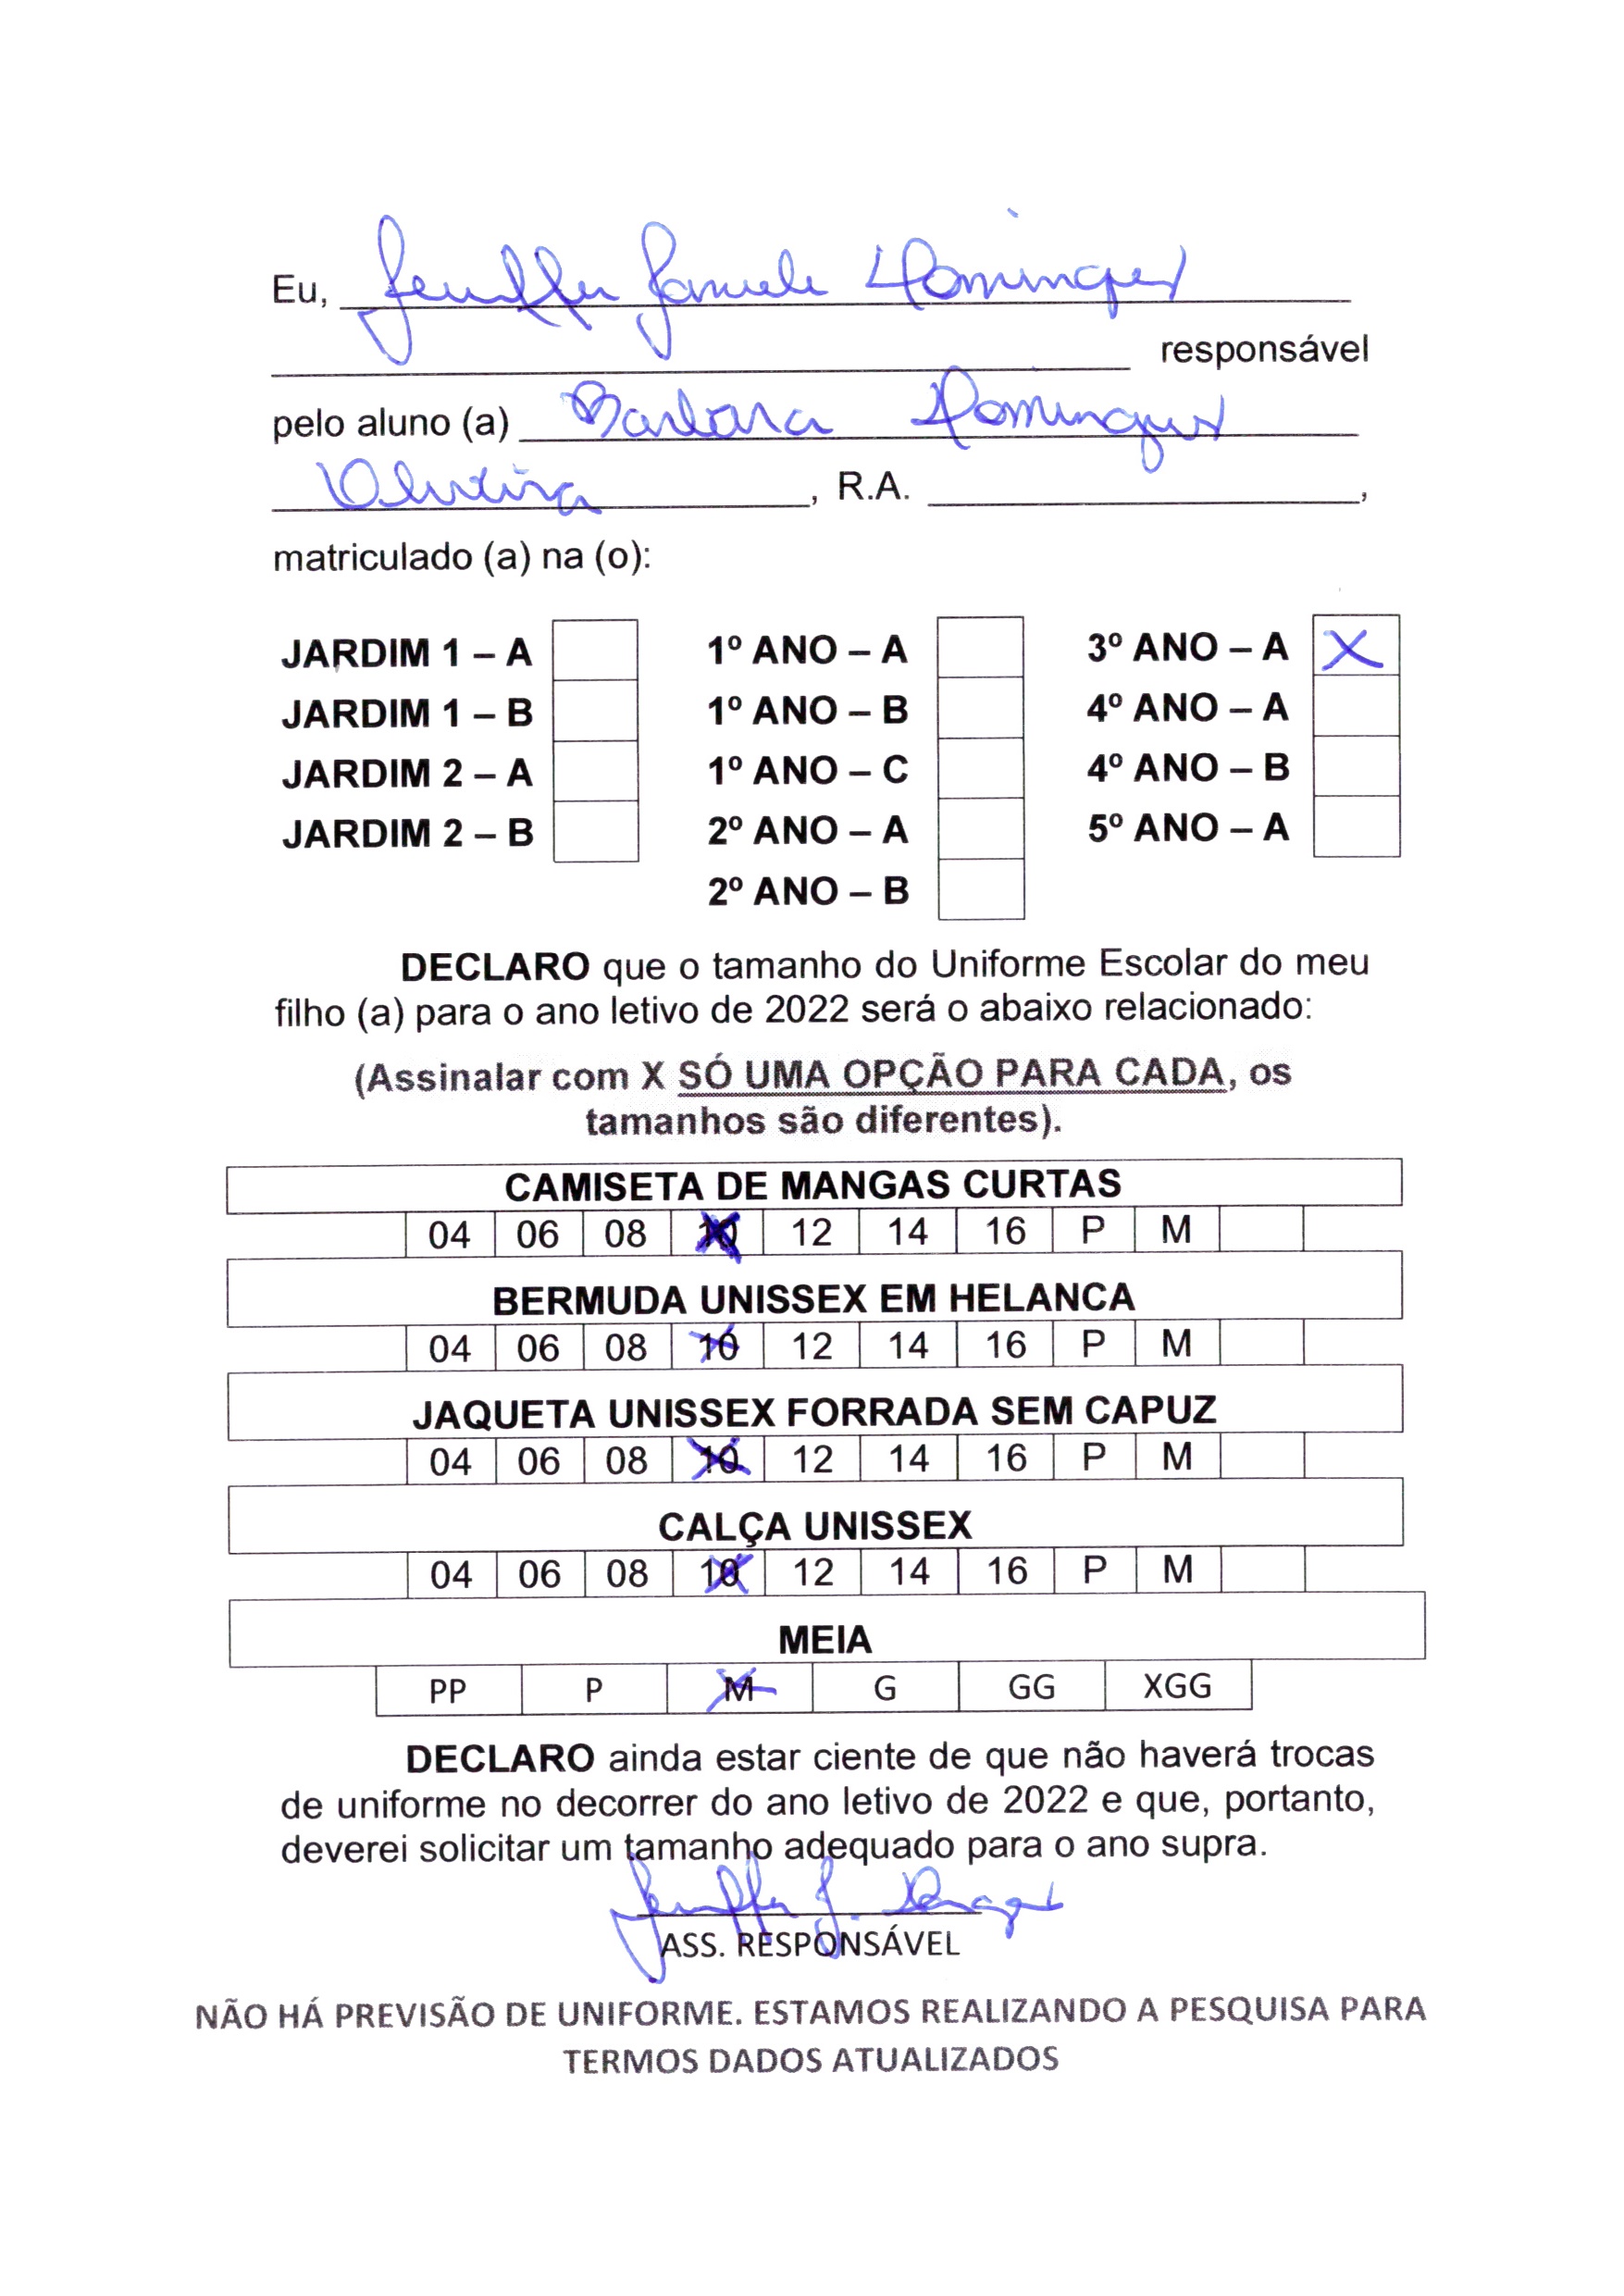 Eu, Jeniffer Daniele Domingues
responsável
pelo aluno (a) Barbara Domingues
Oliveira, R.A.
matriculado (a) na (o):
JARDIM 1 – A 1º ANO – A 3º ANO – A X
JARDIM 1 – B 1º ANO – B 4º ANO – A
JARDIM 2 – A 1º ANO – C 4º ANO – B
JARDIM 2 – B 2º ANO – A 5º ANO – A
2º ANO – B
DECLARO que o tamanho do Uniforme Escolar do meu
filho (a) para o ano letivo de 2022 será o abaixo relacionado:
(Assinalar com X SÓ UMA OPÇÃO PARA CADA, os
tamanhos são diferentes).
CAMISETA DE MANGAS CURTAS
04 06 08 10 12 14 16 P M
BERMUDA UNISSEX EM HELANCA
04 06 08 10 12 14 16 P M
JAQUETA UNISSEX FORRADA SEM CAPUZ
04 06 08 10 12 14 16 P M
CALÇA UNISSEX
04 06 08 10 12 14 16 P M
MEIA
PP P M G GG XGG
DECLARO ainda estar ciente de que não haverá trocas
de uniforme no decorrer do ano letivo de 2022 e que, portanto,
deverei solicitar um tamanho adequado para o ano supra.
ASS. RESPONSÁVEL
NÃO HÁ PREVISÃO DE UNIFORME. ESTAMOS REALIZANDO A PESQUISA PARA
TERMOS DADOS ATUALIZADOS